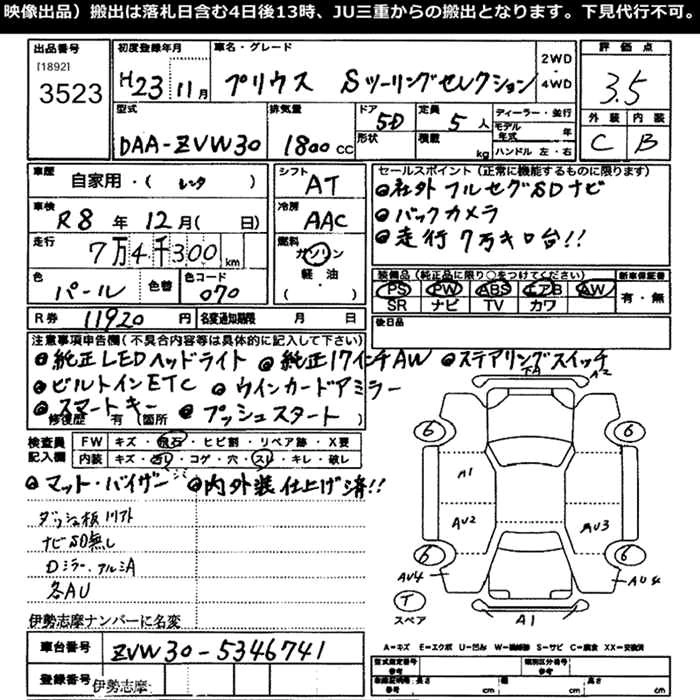 映像出品）搬出は落札日含む4日後13時、JU三重からの搬出となります。下見代行不可。
出品番号 [1892] 3523
初度登録年月 H23 11月
車名・グレード プリウス Sツーリングセレクション
2WD・4WD
評価点 3.5
外装 C 内装 B
型式 DAA-ZVW30
排気量 1800cc
ドア 形状 5D
定員 5人
積載 kg
ディーラー・並行
モデル年式 年
ハンドル 左・右
車歴 自家用・(レンタ)
シフト AT
車検 R8年12月(日)
冷房 AAC
走行 7万4千300km
燃料 ガソリン 軽・油 ( )
色 パール 色替
色コード 070
セールスポイント（正常に機能するものに限ります）
●社外フルセグSDナビ
●バックカメラ
●走行7万キロ台!!
装備品（純正品に限り○をつけてください） 新車保証書
PS PW ABS エアB AW 有・無
SR ナビ TV カワ
R券 11920円 名変通知期限 月 日
後日品
注意事項申告欄（不具合内容等は具体的に記入して下さい）
●純正LEDヘッドライト ●純正17インチAW ●ステアリングスイッチ
●ビルトインETC ●ウインカードアミラー
●スマートキー ●プッシュスタート
修復歴 有（箇所 ）
検査員記入欄
FW キズ・飛石・ヒビ割・リペア跡・X要
内装 キズ・汚レ・コゲ・穴・スレ・キレ・破レ
●マット・バイザー ●内外装仕上げ済!!
ダッシュ板リフト
ナビSD無し
Dミラー、アルミA
各AU
伊勢志摩ナンバーに名変
車台番号 ZVW30-5346741
登録番号 伊勢志摩
下A A2
6 6
A1
AU2 AU3
6 6
AU4 AU4
T スペア
A1
A=キズ E=エクボ U=凹み W=補修跡 S=サビ C=腐食 XX=交換済
型式指定番号 参考 類別区分番号 参考
長さ cm 幅 cm 高さ cm